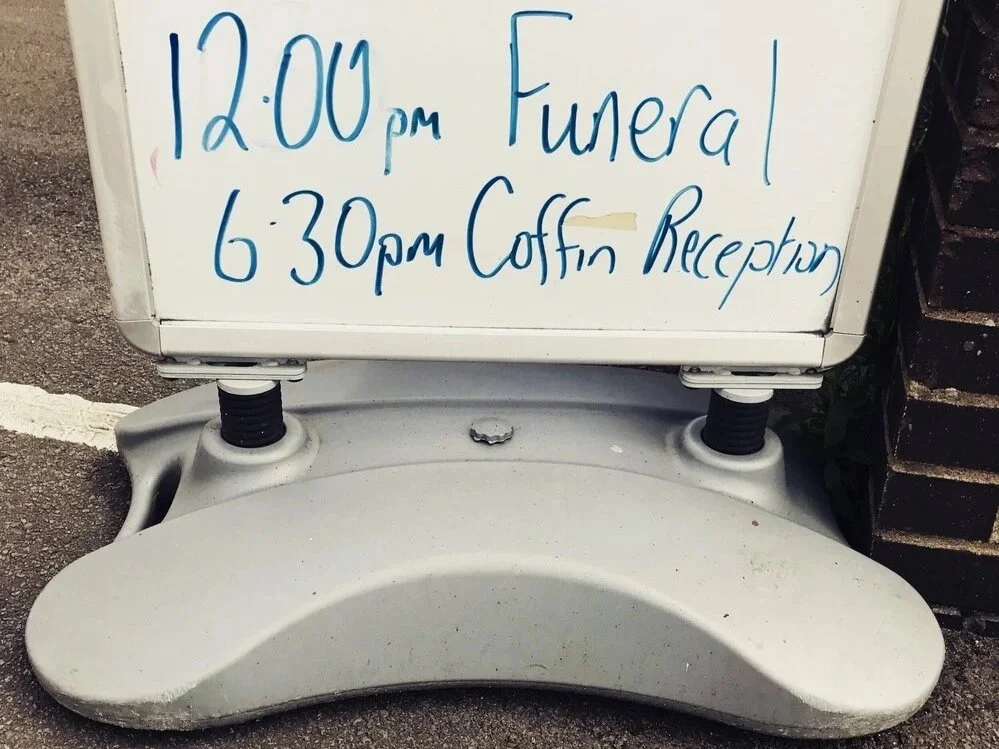 12.00pm Funeral
6.30pm Coffin Reception